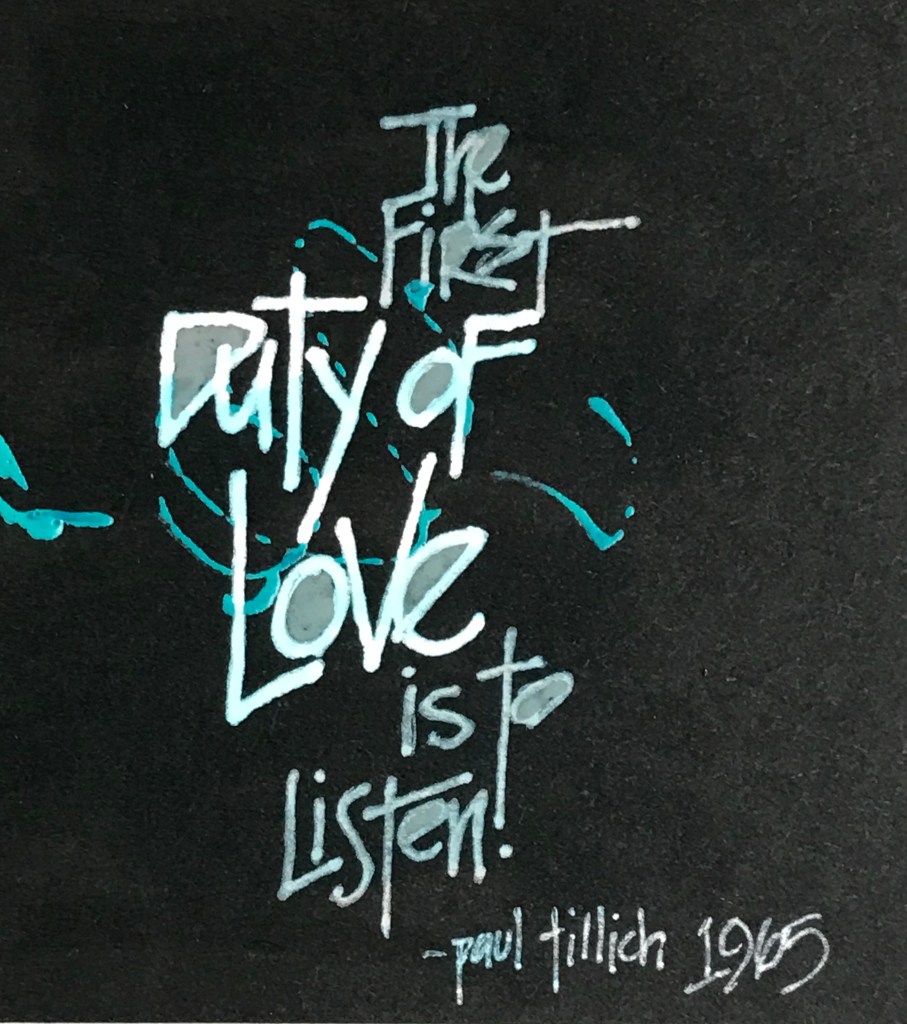 The
First
Duty of
Love
is to
Listen.
-paul tillich 1965